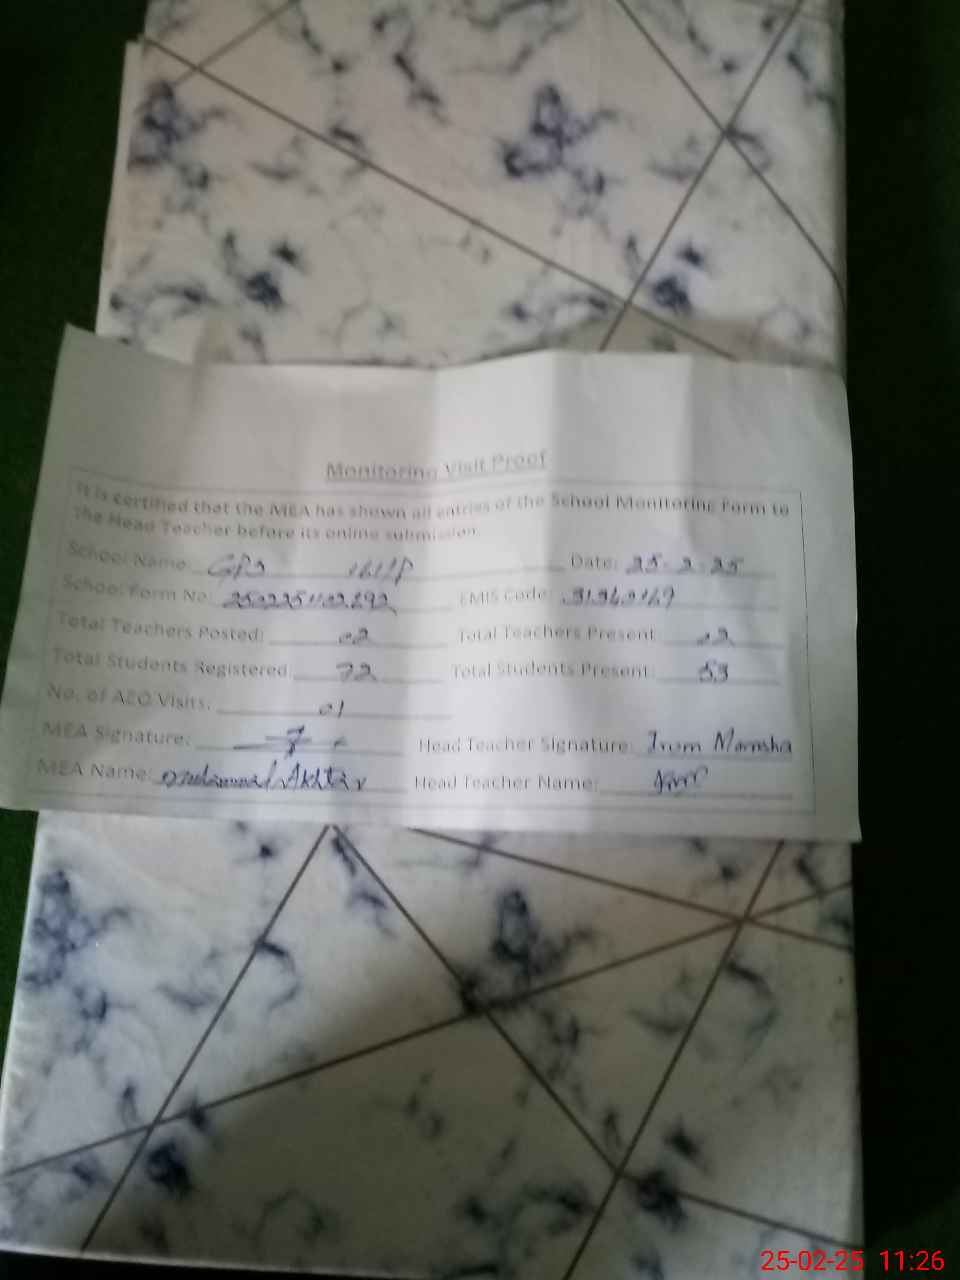 Monitoring Visit Proof
It is certified that the MEA has shown all entries of the School Monitoring Form to
the Head Teacher before its online submission.
School Name: GPS Date: 25-2-25
School Form No: EMIS Code:
Total Teachers Posted: 02 Total Teachers Present: 02
Total Students Registered: 72 Total Students Present: 53
No. of AEO Visits: 01
MEA Signature: Head Teacher Signature: Irum
MEA Name: Muhammad Akhtar Head Teacher Name:
25-02-25 11:26